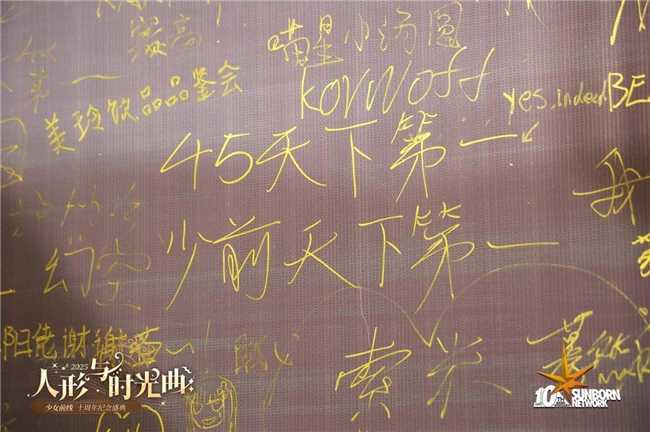 最高
第一
喵星小汤圆
美玲饮品品鉴会
KOVWOFF
yes, indeed
BE
45天下第一
少前天下第一
我
幻空
阳佬谢谢
索米
2025
人形与时光曲
少女前线 十周年纪念盛典
10
SUNBORN
NETWORK